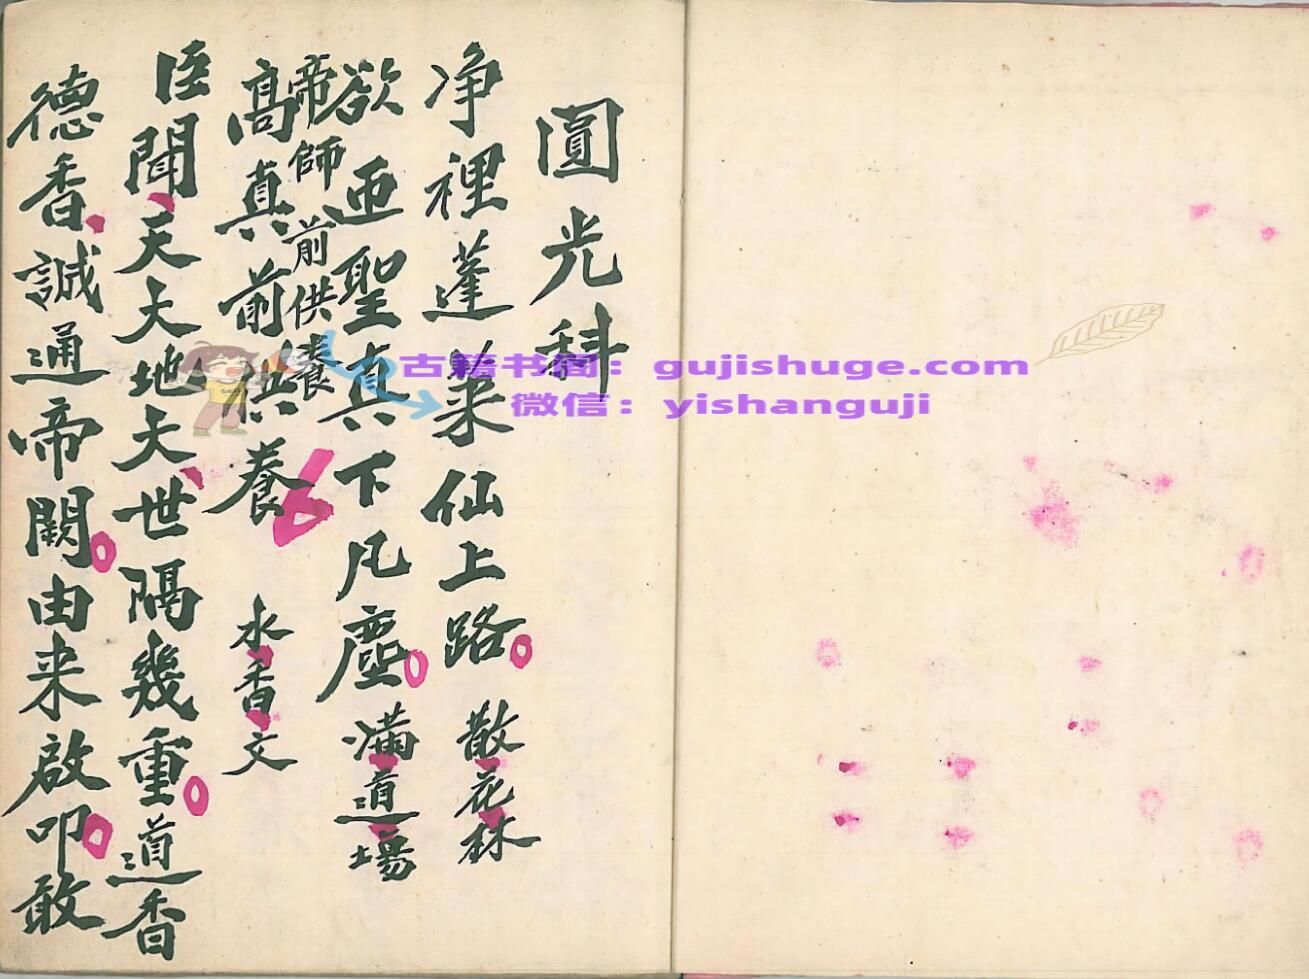 圓光科
净裡蓬莱仙上路 散花林
欲迎聖真下凡塵 满道場
帝師前供養
髙真前供養 水香文
臣聞天大地大世隔幾重道香
德香誠通帝闕由来啟叩敢
古籍书阁：gujishuge.com
微信：yishanguji